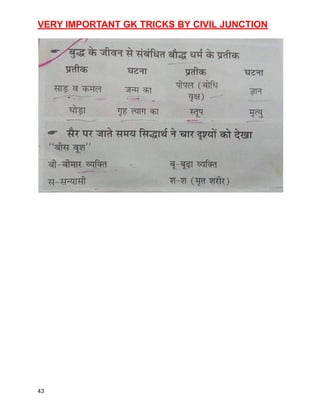 VERY IMPORTANT GK TRICKS BY CIVIL JUNCTION
बुद्ध के जीवन से संबंधित बौद्ध धर्म के प्रतीक
प्रतीक घटना प्रतीक घटना
साड़ व कमल जन्म का पीपल (बोधि वृक्ष) ज्ञान
घोड़ा गृह त्याग का स्तूप मृत्यु
सैर पर जाते समय सिद्धार्थ ने चार दृश्यों को देखा
"बीस वूश"
बी-बीमार व्यक्ति बू-बूढ़ा व्यक्ति
स-सन्यासी श-श (मृत शरीर)
43